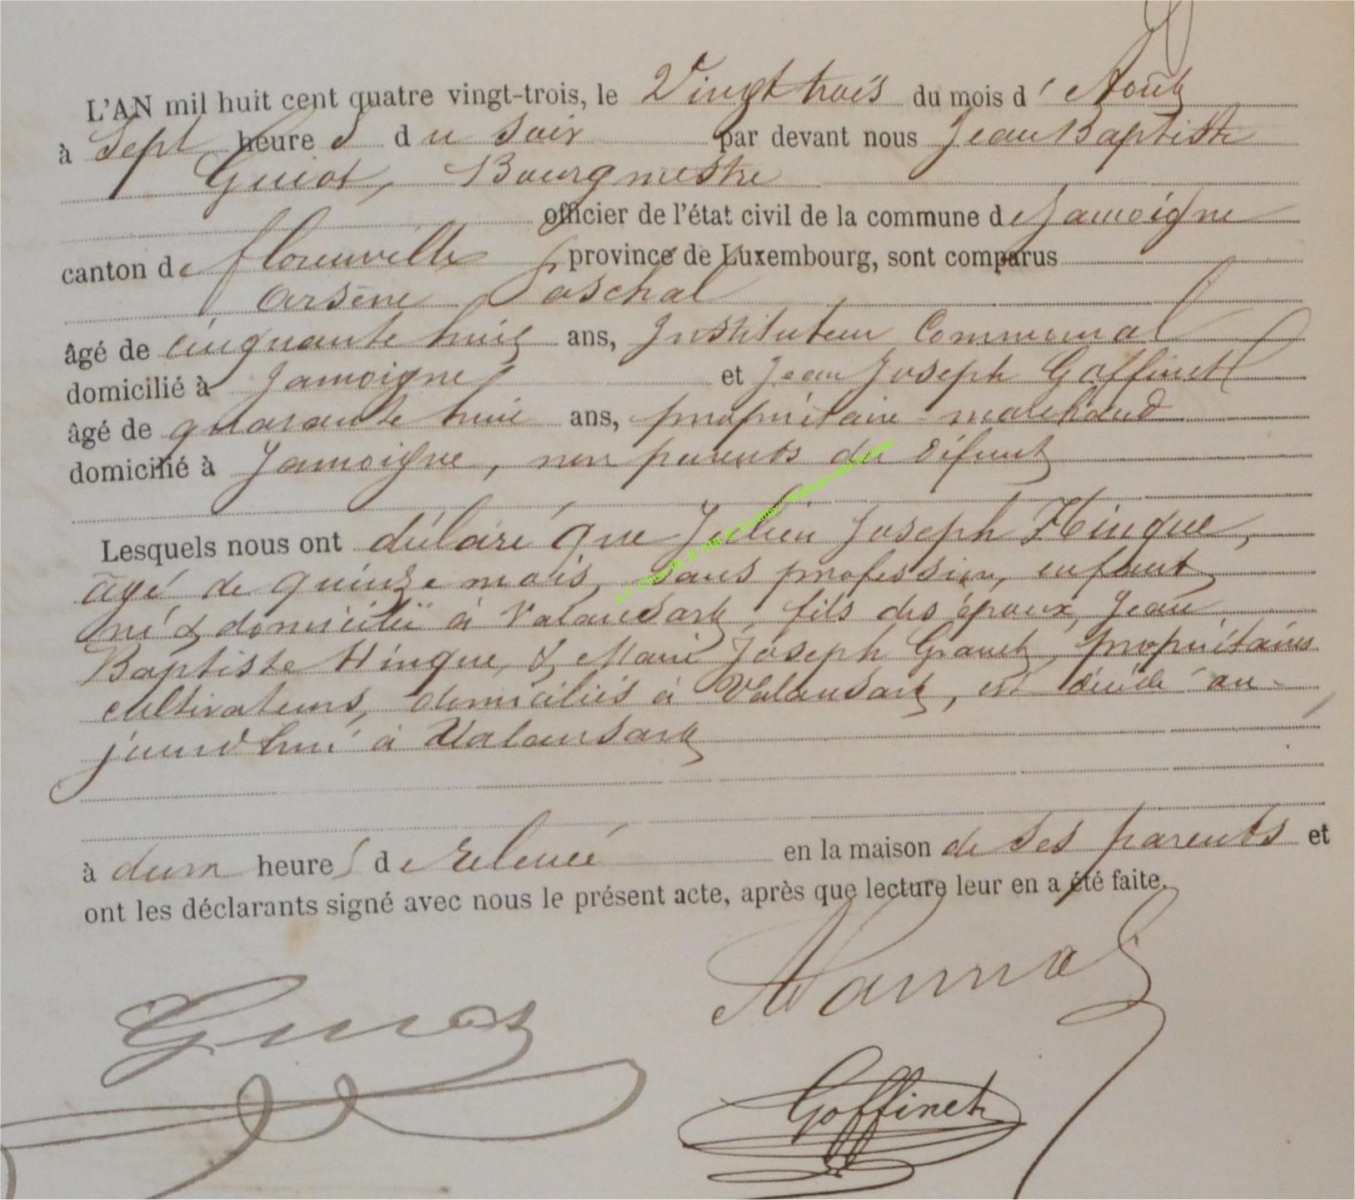 L'AN mil huit cent quatre vingt-trois, le Vingt trois du mois d'Août
à Sept heures du Soir par devant nous Jean Baptiste
Guiot, Bourgmestre
officier de l'état civil de la commune de Jamoigne
canton de florenville province de Luxembourg, sont comparus
Arsène Paschal
âgé de cinquante huit ans, Instituteur Communal
domicilié à Jamoigne et Jean Joseph Goffinet
âgé de quarante huit ans, propriétaire marchand
domicilié à Jamoigne, non parents du défunt
Lesquels nous ont déclaré que Julien Joseph Hinque,
âgé de quinze mois, sans profession, enfant
né & domicilié à Valansart, fils des époux Jean
Baptiste Hinque, & Marie Joseph Gravet, propriétaires
cultivateurs, domiciliés à Valansart, est décédé au-
jourd'hui à Valansart
à deux heures de relevée en la maison de ses parents et
ont les déclarants signé avec nous le présent acte, après que lecture leur en a été faite.
Guiot
Goffinet